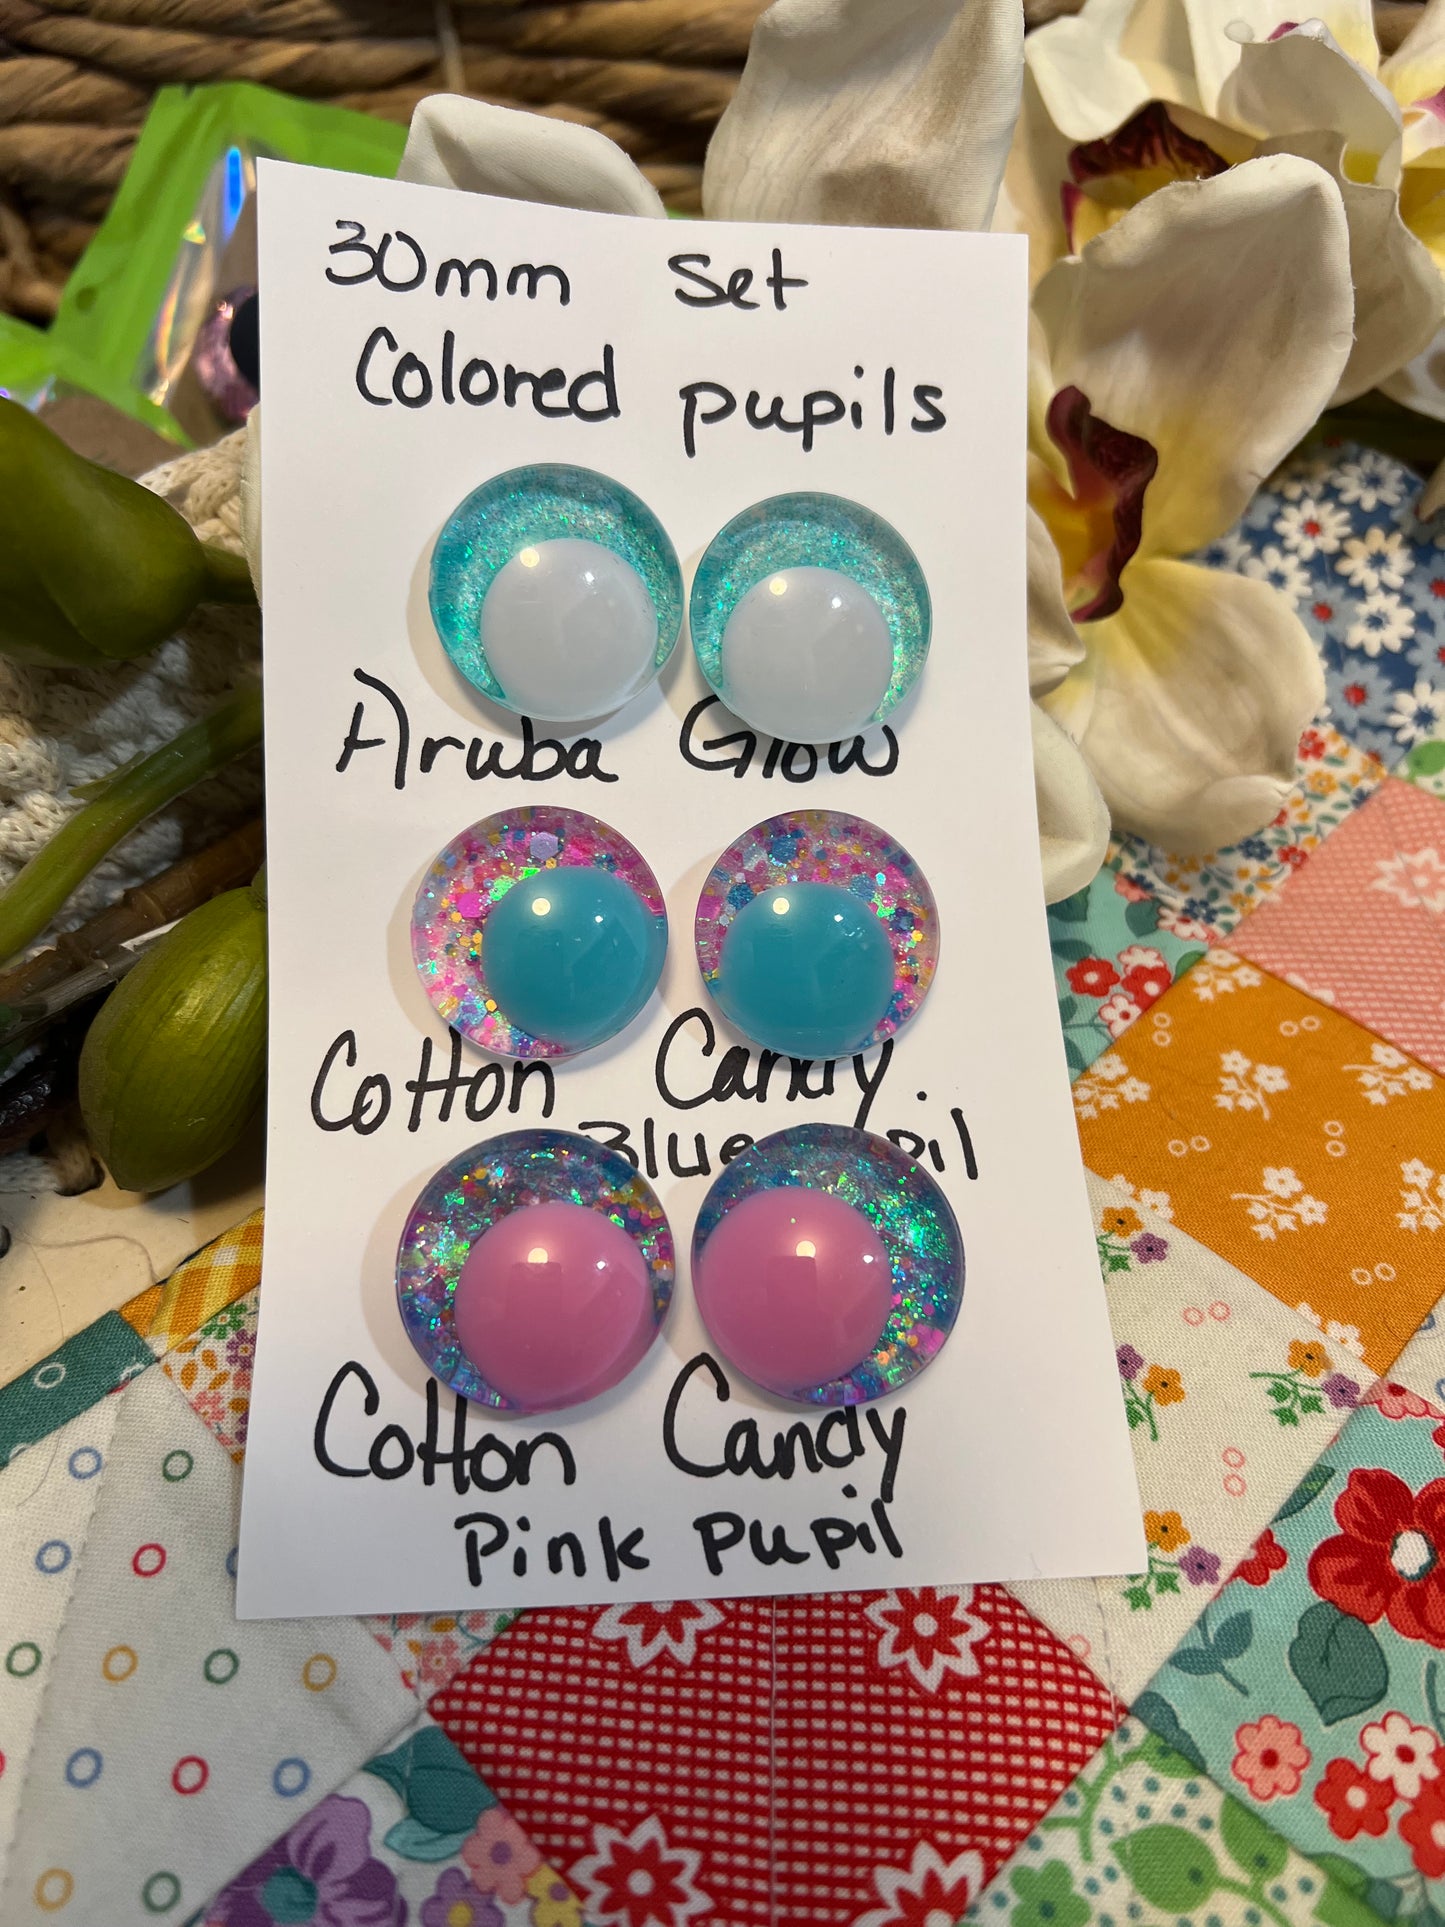 30mm Set
Colored pupils
Aruba Glow
Cotton Candy.
Blue
Cotton Candy
Pink pupil